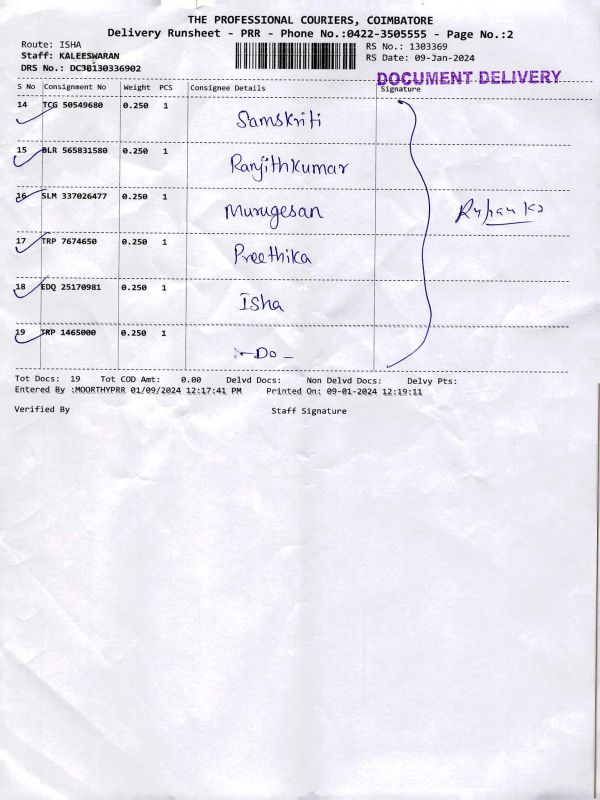 THE PROFESSIONAL COURIERS, COIMBATORE
Delivery Runsheet - PRR - Phone No.:0422-3505555 - Page No.:2
Route: ISHA
RS No.: 1303369
Staff: KALEESWARAN
RS Date: 09-Jan-2024
DRS No.: DCJB130336902
DOCUMENT DELIVERY
S No Consignment No Weight PCS Consignee Details Signature
14 TCG 50549680 0.250 1 Samskriti
15 BLR 565831580 0.250 1 Ranjithkumar
16 SLM 337026477 0.250 1 Murugesan
17 TRP 7674650 0.250 1 Preethika
18 EDQ 25170981 0.250 1 Isha
19 TRP 1465000 0.250 1 -Do-
Tot Docs: 19 Tot COD Amt: 0.00 Delvd Docs: Non Delvd Docs: Delvy Pts:
Entered By :MOORTHYPRR 01/09/2024 12:17:41 PM Printed On: 09-01-2024 12:19:11
Verified By Staff Signature